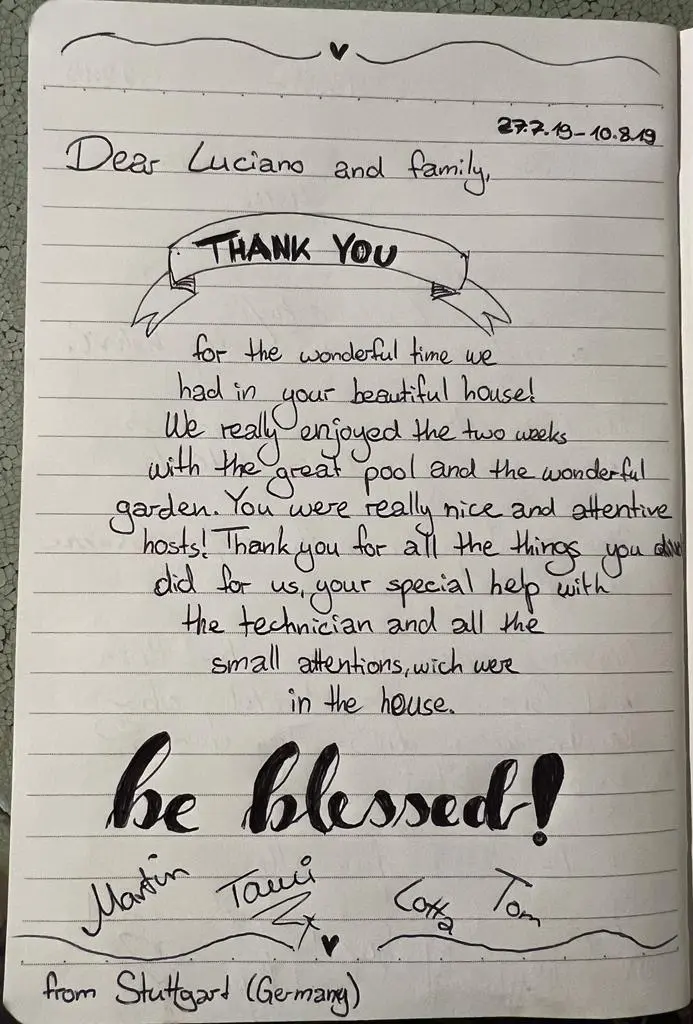 27.7.19-10.8.19
Dear Luciano and family,
THANK YOU
for the wonderful time we
had in your beautiful house!
We really enjoyed the two weeks
with the great pool and the wonderful
garden. You were really nice and attentive
hosts! Thank you for all the things you
did for us, your special help with
the technician and all the
small attentions, wich were
in the house.
be blessed!
Martin Tami Lotta Tom
from Stuttgart (Germany)